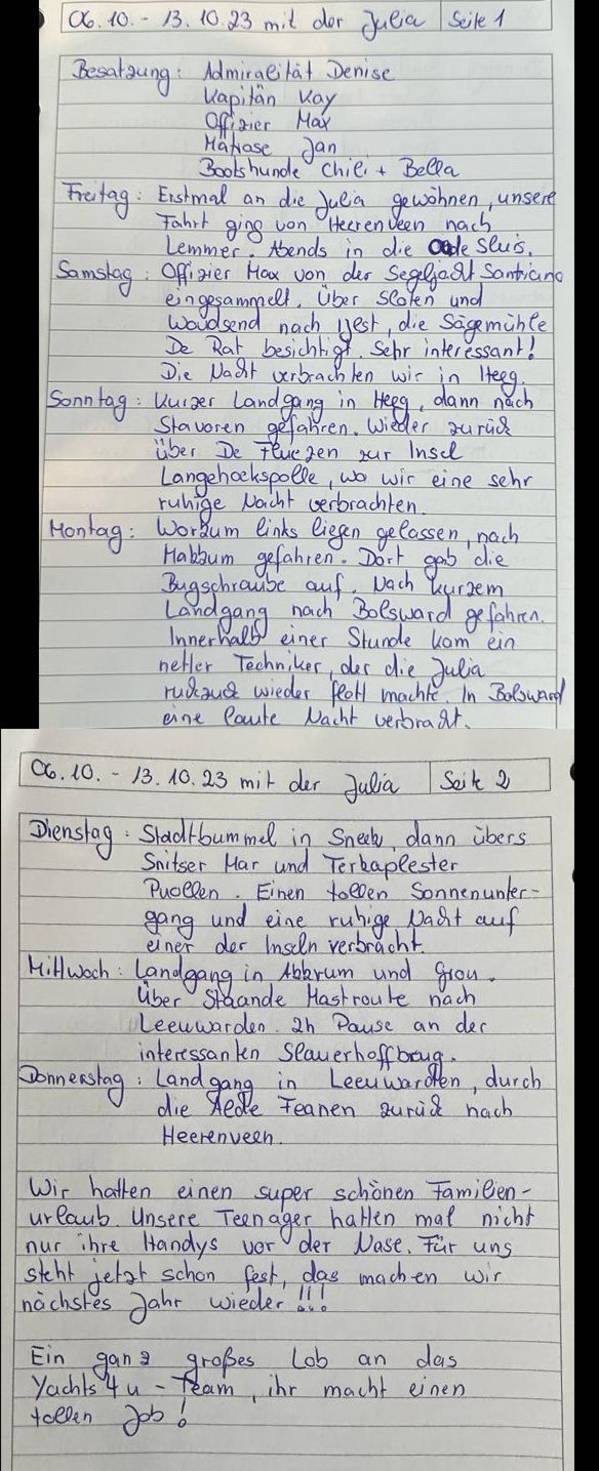 06.10. - 13.10.23 mit der Julia Seite 1
Besatzung: Admiralität Denise
Kapitän Kay
Offizier Max
Matrose Jan
Bootshunde Chili + Bella
Freitag: Erstmal an die Julia gewöhnen, unsere
Fahrt ging von Heerenveen nach
Lemmer. Abends in die Sluis.
Samstag: Offizier Max von der Segeljacht Santiano
eingesammelt. Über Sloten und
Woudsend nach Ijlst, die Sägemühle
De Rat besichtigt. Sehr interessant!
Die Nacht verbrachten wir in Heeg.
Sonntag: Kurzer Landgang in Heeg, dann nach
Stavoren gefahren. Wieder zurück
über De Fluezen zur Insel
Langehoekspolle, wo wir eine sehr
ruhige Nacht verbrachten.
Montag: Workum links liegen gelassen, nach
Makkum gefahren. Dort gab die
Bugschraube auf. Nach kurzem
Landgang nach Bolsward gefahren.
Innerhalb einer Stunde kam ein
netter Techniker, der die Julia
ruckzuck wieder flott machte. In Bolsward
eine laute Nacht verbracht.
06.10. - 13.10.23 mit der Julia Seite 2
Dienstag: Stadtbummel in Sneek, dann übers
Snitser Mar und Terkaplester
Puollen. Einen tollen Sonnenunter-
gang und eine ruhige Nacht auf
einer der Inseln verbracht.
Mittwoch: Landgang in Akkrum und Grou.
Über Staande Mastroute nach
Leeuwarden. 2h Pause an der
interessanten Slauerhoffbrug.
Donnerstag: Landgang in Leeuwarden, durch
die Alde Feanen zurück nach
Heerenveen.
Wir hatten einen super schönen Familien-
urlaub. Unsere Teenager hatten mal nicht
nur ihre Handys vor der Nase. Für uns
steht jetzt schon fest, das machen wir
nächstes Jahr wieder!!!
Ein ganz großes Lob an das
Yachts4u - Team, ihr macht einen
tollen Job!